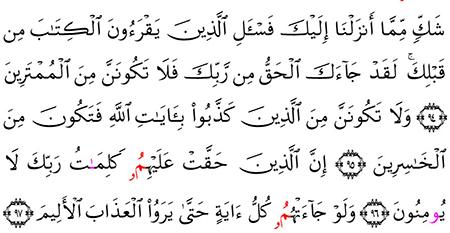 شَكٍّ مِّمَّا أَنزَلْنَا إِلَيْكَ فَسْـَٔلِ ٱلَّذِينَ يَقْرَءُونَ ٱلْكِتَٰبَ مِن
قَبْلِكَ ۚ لَقَدْ جَآءَكَ ٱلْحَقُّ مِن رَّبِّكَ فَلَا تَكُونَنَّ مِنَ ٱلْمُمْتَرِينَ
﴿٩٤﴾ وَلَا تَكُونَنَّ مِنَ ٱلَّذِينَ كَذَّبُوا۟ بِـَٔايَٰتِ ٱللَّهِ فَتَكُونَ مِنَ
ٱلْخَٰسِرِينَ ﴿٩٥﴾ إِنَّ ٱلَّذِينَ حَقَّتْ عَلَيْهِمُۥ كَلِمَٰتُ رَبِّكَ لَا
يُومِنُونَ ﴿٩٦﴾ وَلَوْ جَآءَتْهُمُۥ كُلُّ ءَايَةٍ حَتَّىٰ يَرَوُا۟ ٱلْعَذَابَ ٱلْأَلِيمَ ﴿٩٧﴾